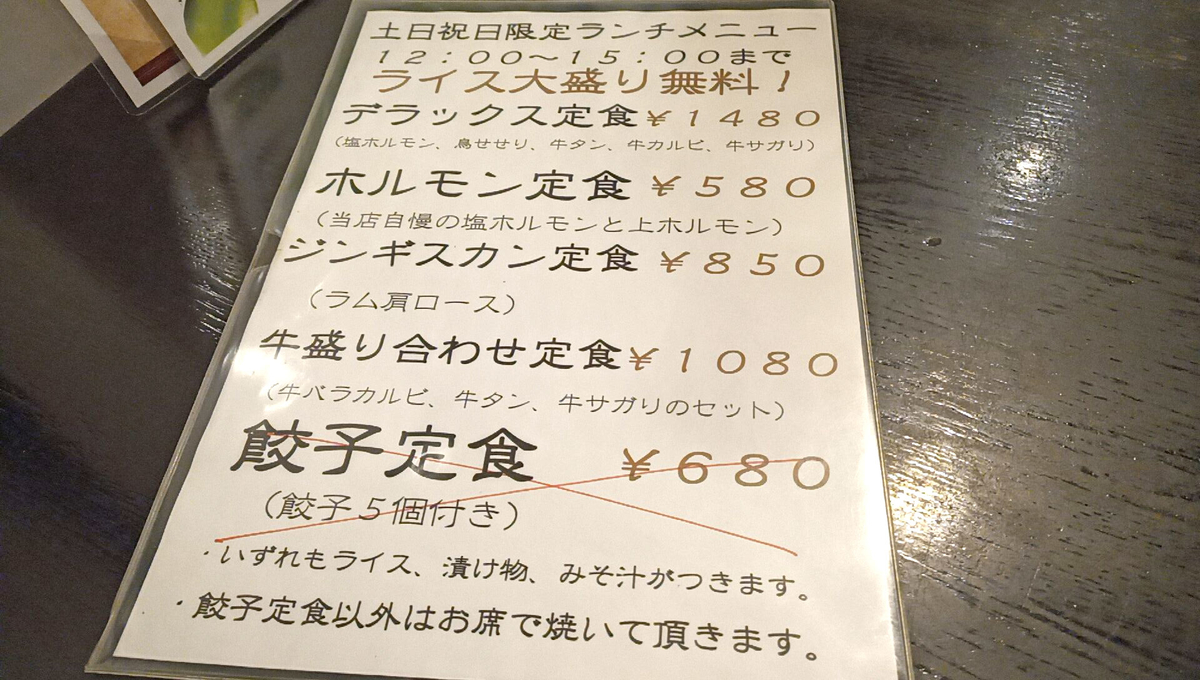 土日祝日限定ランチメニュー
12:00～15:00まで
ライス大盛り無料！
デラックス定食¥1480
（塩ホルモン、鳥せせり、牛タン、牛カルビ、牛サガリ）
ホルモン定食 ¥580
（当店自慢の塩ホルモンと上ホルモン）
ジンギスカン定食 ¥850
（ラム肩ロース）
牛盛り合わせ定食¥1080
（牛バラカルビ、牛タン、牛サガリのセット）
餃子定食 ¥680
（餃子5個付き）
・いずれもライス、漬け物、みそ汁がつきます。
・餃子定食以外はお席で焼いて頂きます。